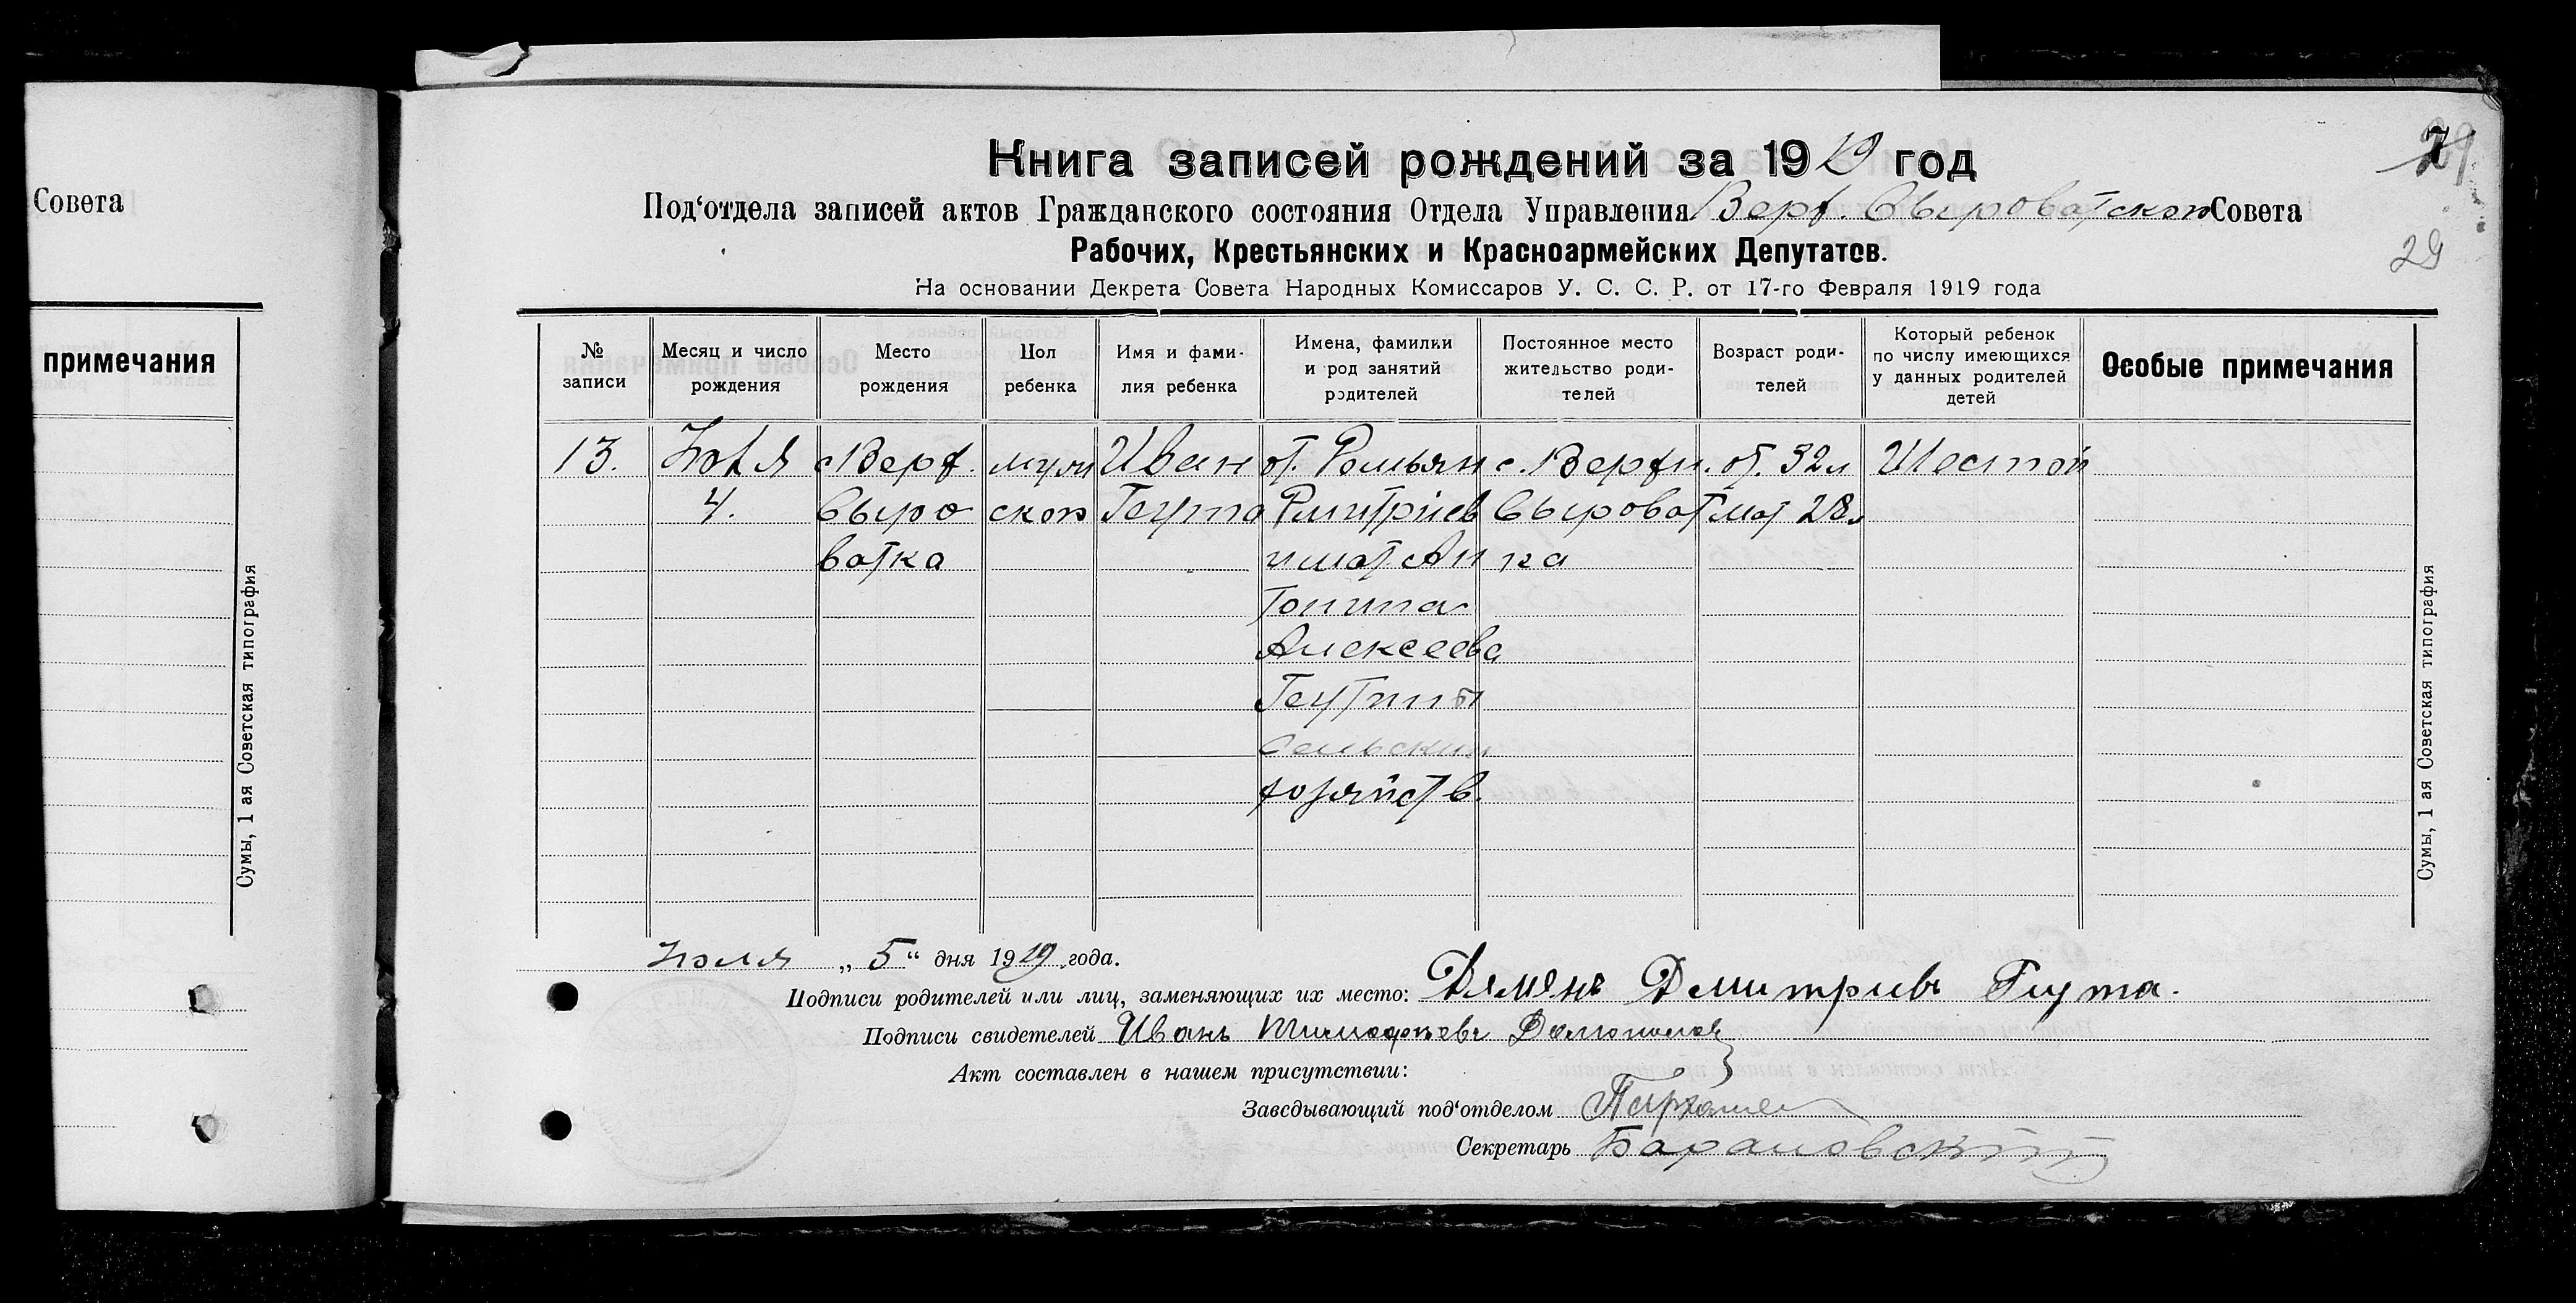 Совета
примечания
Сумы, 1 ая Советская типография
7
29
Книга записей рождений за 1919 год
Под'отдела записей актов Гражданского состояния Отдела Управления Верх. Сыроватского Совета
Рабочих, Крестьянских и Красноармейских Депутатов.
29
На основании Декрета Совета Народных Комиссаров У. С. С. Р. от 17-го Февраля 1919 года
№ записи
Месяц и число рождения
Место рождения
Пол ребенка
Имя и фами-
лия ребенка
Имена, фамилии
и род занятий
родителей
Постоянное место
жительство роди-
телей
Возраст роди-
телей
Который ребенок
по числу имеющихся
у данных родителей
детей
Особые примечания
13. Юля с Верх. муж Иван от. Демьян с. Верхн. от. 32 л Шестой
4. Сыро ског Дмитриев Сыроват мат 28 л
ватка и мат Ан ка
тонина
Алексеева
Сельский
хозяйств.
Сумы, 1 ая Советская типография
июля „5“ дня 1919 года.
Подписи родителей или лиц, заменяющих их место: Дямянъ Дмитривъ
Подписи свидетелей Иванъ Тимофѣевъ
Акт составлен в нашем присутствии:
Заведывающий под'отделом
Секретарь Барановский